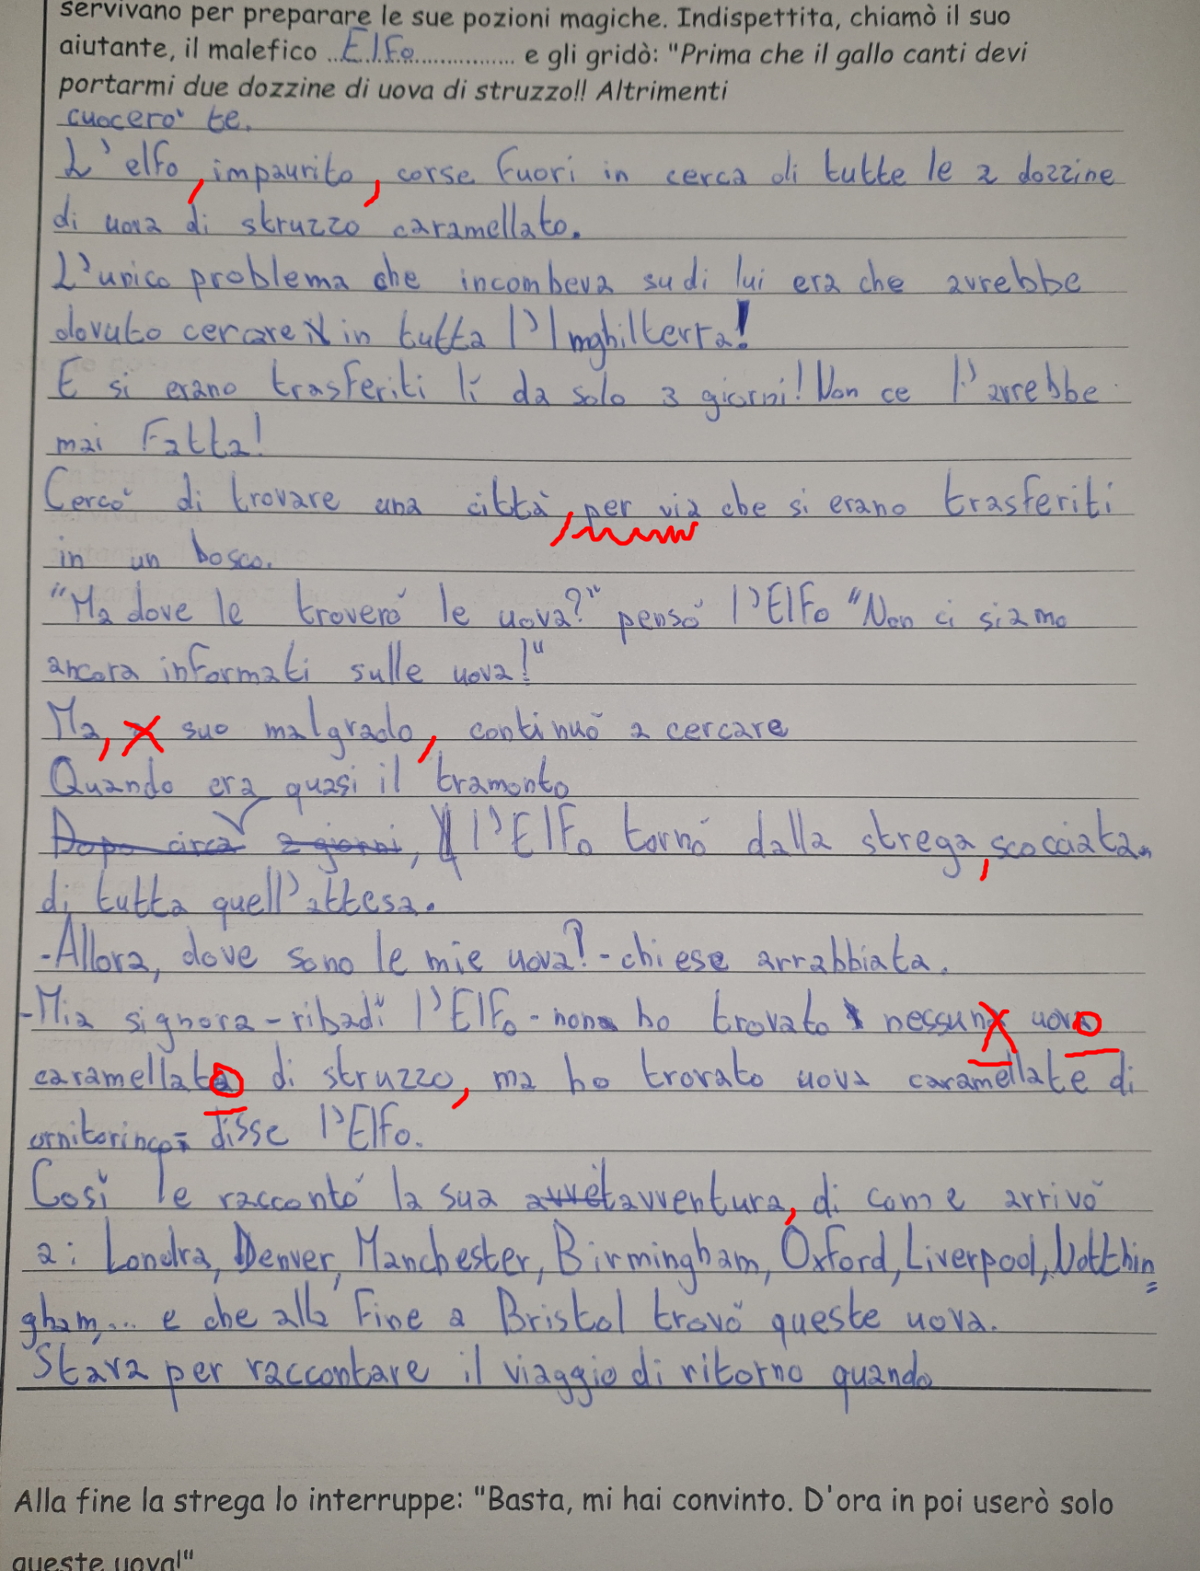 servivano per preparare le sue pozioni magiche. Indispettita, chiamò il suo
aiutante, il malefico ...Elfo.................. e gli gridò: "Prima che il gallo canti devi
portarmi due dozzine di uova di struzzo!! Altrimenti
cuocerò te.
L'elfo, impaurito, corse fuori in cerca di tutte le 2 dozzine
di uova di struzzo caramellato.
L'unico problema che incombeva su di lui era che avrebbe
dovuto cercare in tutta l'Imghilterra!
E si erano trasferiti lì da solo 3 giorni! Non ce l'avrebbe
mai fatta!
Cercò di trovare una città, per via che si erano trasferiti
in un bosco.
"Ma dove le troverò le uova?" pensò l'Elfo "Non ci siamo
ancora informati sulle uova!"
Ma, suo malgrado, continuò a cercare
Quando era quasi il tramonto
Dopo circa 2 giorni, l'Elfo tornò dalla strega, scocciata
di tutta quell'attesa.
-Allora, dove sono le mie uova?!-chiese arrabbiata.
-Mia signora-ribadì l'Elfo-non ho trovato nessun uovo
caramellato di struzzo, ma ho trovato uova caramellate di
ornitorinco- disse l'Elfo.
Così le raccontò la sua avvet avventura, di come arrivò
a: Londra, Denver, Manchester, Birmingham, Oxford, Liverpool, Notthin=
gham,... e che alla fine a Bristol trovò queste uova.
Stava per raccontare il viaggio di ritorno quando
Alla fine la strega lo interruppe: "Basta, mi hai convinto. D'ora in poi userò solo
queste uova!"